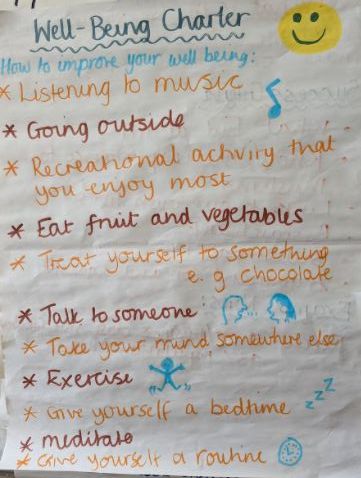 Well-Being Charter
How to improve your well being:
* Listening to music
* Going outside
* Recreational activity that
you enjoy most
* Eat fruit and vegetables
* Treat yourself to something
e.g chocolate
* Talk to someone
* Take your mind somewhere else
* Exercise
* Give yourself a bedtime zzz
* meditate
* Give yourself a routine